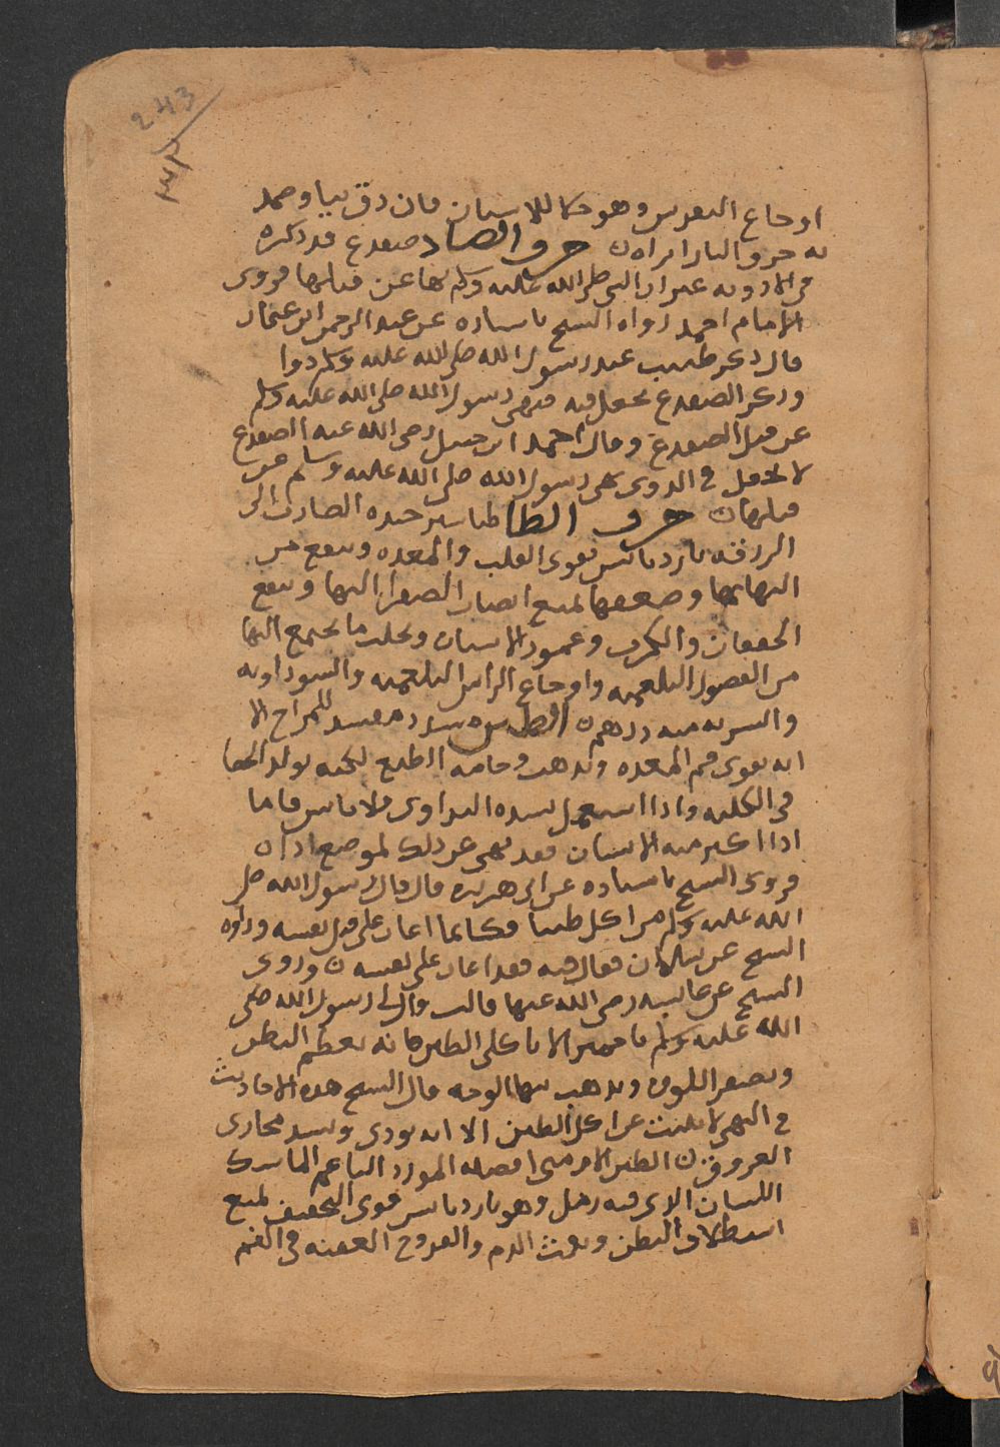 243
اوجاع النقرس وهو حكاك للاسنان فان دق ناعما وضمد
به حرق النار ابراه ۝ حرف الضاد ضفدع قد ذكره
في الادويه غير ان النبي صلى الله عليه وسلم نها عن قتلها فروى
الامام احمد رواه الشيخ باسناده عن عبد الرحمن ابن عثمان
قال ذكر طبيب عند رسول الله صلى الله عليه وسلم دوا
وذكر الضفدع يجعل فيه فنهى رسول الله صلى الله عليه وسلم
عن قتل الضفدع وقال احمد ابن حنبل رضى الله عنه الضفدع
لا تجعل في الدوى نهى رسول الله صلى الله عليه وسلم عن
قتلها ۝ حرف الطا طباشير جيده الضارب الى
الزرقه بارد يابس يقوى القلب والمعده وينفع من
التهابها وضعفها لمنع انصباب الصفرا اليها وينفع
الخفقان والكرب وعمور الاسنان ويحلب ما يجتمع اليها
من الفضول البلغميه واوجاع الراس البلغميه والسوداويه
والشربه منه درهم ۝ الطين مسدد مفسد للمزاج الا
انه يقوى فم المعده ويذهب وخامه الطبع لكنه يولد الحصا
في الكليه واذا استعمل لشده التداوى فلا باس فاما
اذا اكثر منه الانسان فقد نهى عن ذلك لموضع اذاه
فروى الشيخ باسناده عن ابى هريره قال قال رسول الله صلى
الله عليه وسلم من اكل طينا فكانما اعان على قتل نفسه ورواه
الشيخ عن سلمان فقال فيه فقد اعان على نفسه ۝ وروى
الشيخ عن عائشه رضى الله عنها قالت قال لى رسول الله صلى
الله عليه وسلم يا حميرا لا تاكلى الطين فانه يعظم البطن
ويصفر اللون ويذهب بها الوجه قال الشيخ هذه الاحاديث
في النهى لا تثبت عن اكل الطين الا انه يوذى ويسد مجارى
العروق ۝ الطين الارمنى افضله المورد الناعم الماسك
اللسان الذى فيه رمل وهو بارد يابس قوى التجفيف لمنع
استطلاق البطن ونفث الدم والقروح العفنه في الفم